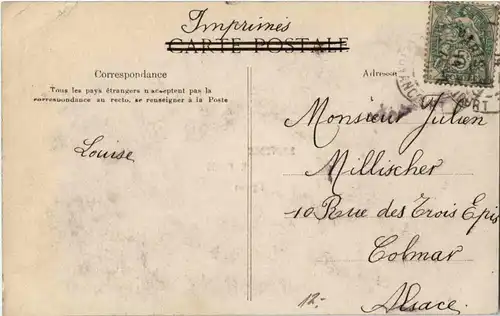 Imprimés
CARTE POSTALE
Correspondance
Tous les pays étrangers n'acceptent pas la
correspondance au recto, se renseigner à la Poste
Louise
Adresse
Monsieur Julien
Millischer
10 Rue des Trois Epis
Colmar
Alsace.
12.-